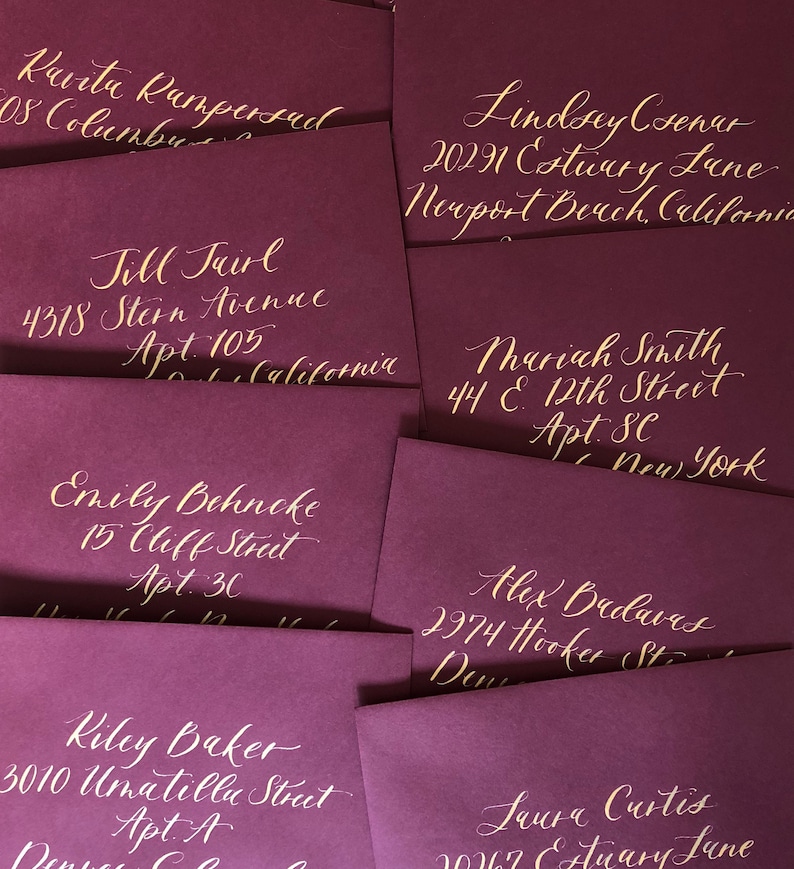 Kavita Rampersad
808 Columbus
Lindsey Csenar
20291 Estuary Lane
Newport Beach, California
Jill Jairl
4318 Stern Avenue
Apt. 105
California
Mariah Smith
44 E. 12th Street
Apt. 8C
New York
Emily Behncke
15 Cliff Street
Apt. 3C
New York, New York
Alex Badavas
2974 Hooker Street
Denver
Kiley Baker
3010 Umatilla Street
Apt. A
Denver, Colorado
Laura Curtis
20267 Estuary Lane